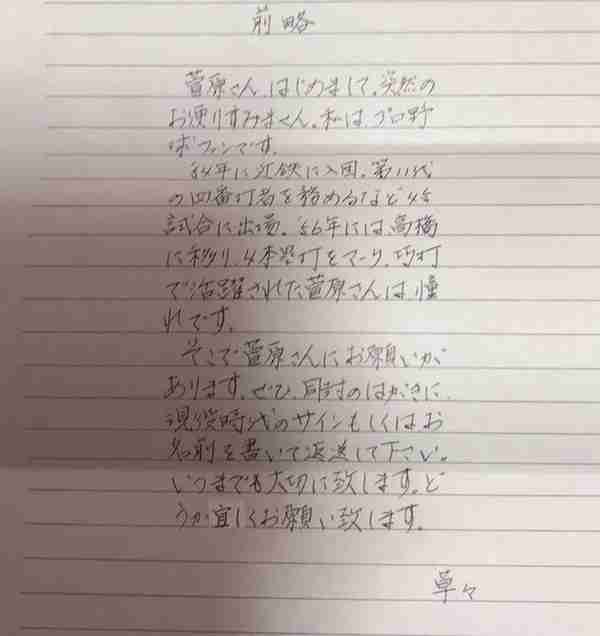 前略
菅原さん、はじめまして。突然の
お便りすみません。私は、プロ野
球ファンです。
54年に近鉄に入団。第11代
の四番打者を務めるなど45
試合に出場。56年には、高橋
に移り、4本塁打をマーク。巧打
で活躍された菅原さんは憧
れです。
そこで菅原さんにお願いが
あります。ぜひ、同封のはがきに、
現役時代のサインもしくはお
名前を書いて返送して下さい。
いつまでも大切に致します。ど
うか宜しくお願い致します。
草々